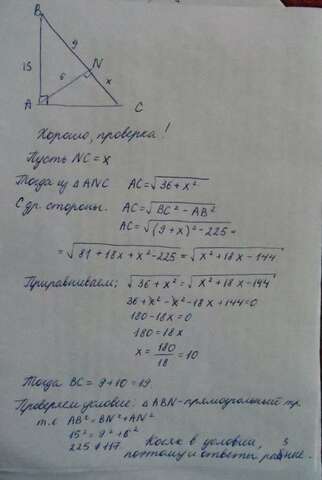 B
9
15
N
6
x
A
C
Хорошо, проверка!
Пусть NC = x
Тогда из ΔANC AC = √36 + x²
С др. стороны. AC = √BC² - AB²
AC = √(9 + x)² - 225 =
= √81 + 18x + x² - 225 = √x² + 18x - 144
Приравниваем; √36 + x² = √x² + 18x - 144
36 + x² - x² - 18x + 144 = 0
180 - 18x = 0
180 = 18x
x = 180/18 = 10
Тогда BC = 9 + 10 = 19
Проверяем условие: ΔABN - прямоугольный тр.
т.е AB² = BN² + AN²
15² = 9² + 6²
225 ≠ 117. Косяк в условии,
поэтому и ответы разные.